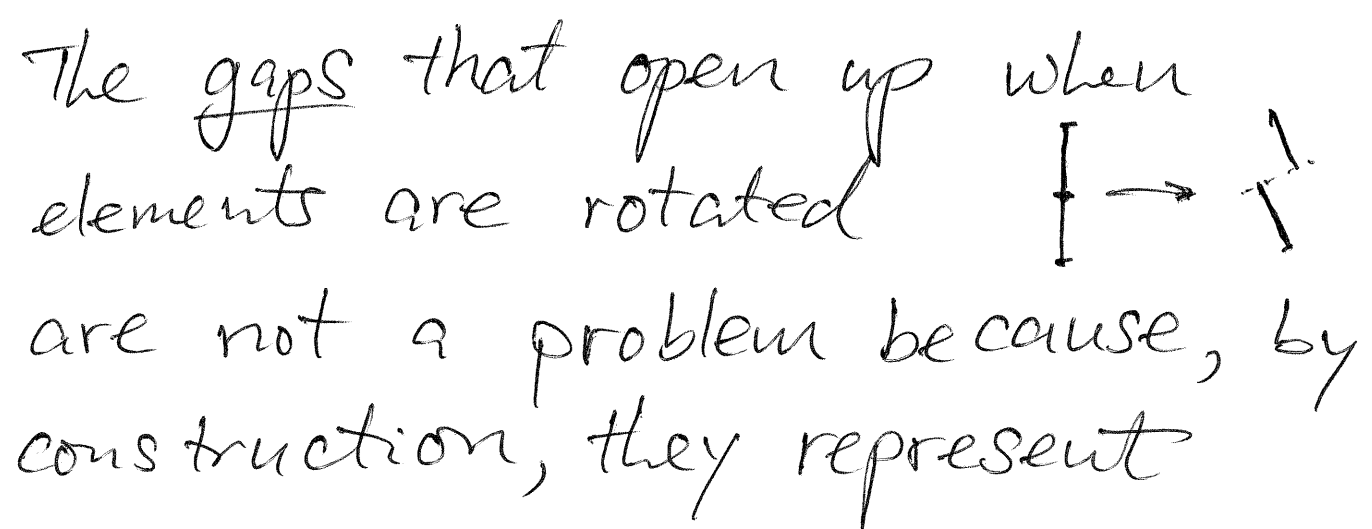 The gaps that open up when
elements are rotated
are not a problem because, by
construction, they represent